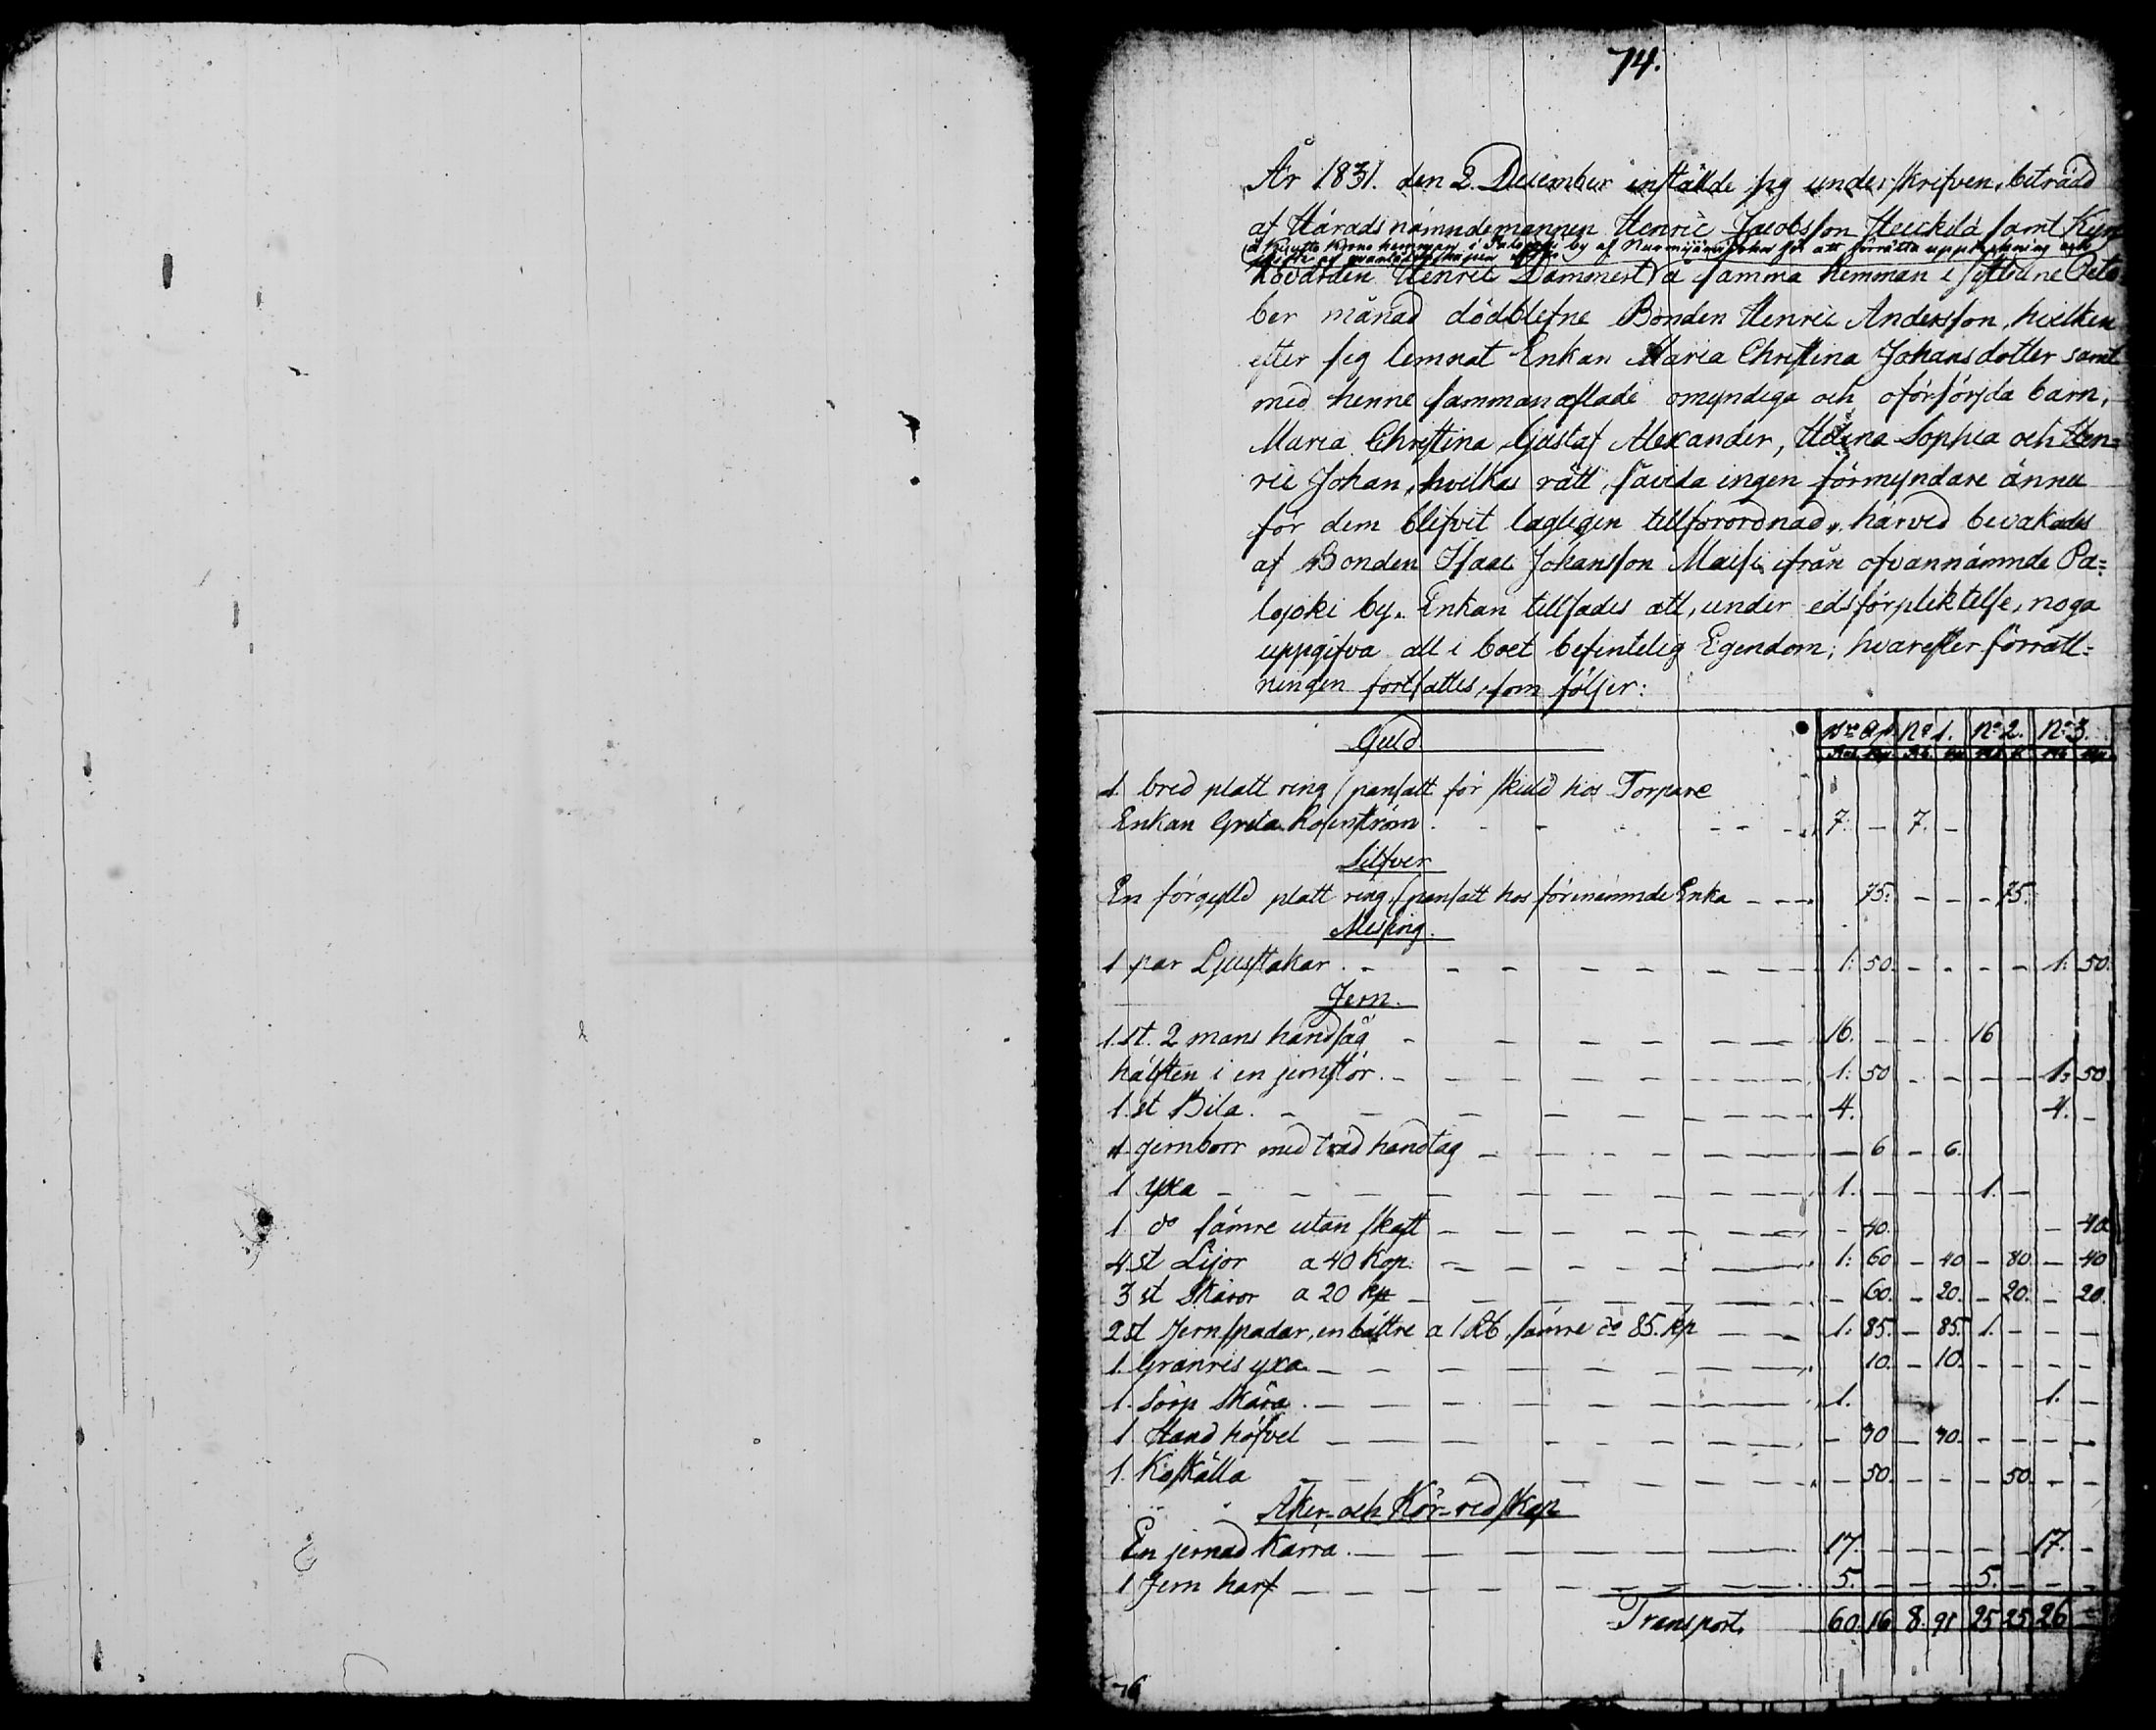 74.
År 1831. den 2. December instälde sig underskrifven, biträdd
af Häradsnämndemannen Henric Jacobsson Heickilä samt
å Knuts Krono hemman i Palojoki by af Nurmijärvi Sokn för att förrätta uppteckning och
Henric Dammert å samma hemman i sistledne Octo
ber månad dödblefne Bonden Henric Andersson, hvilken
efter sig lemnat Enkan Maria Christina Johansdotter samt
med henne sammanaflade omyndiga och oförsörjda barn,
Maria Christina, Gustaf Alexander, Helena Sophia och Hen=
ric Johan, hvilkas rätt, såvida ingen förmyndare ännu
för dem blifvit lagligen tillförordnad, härved bevakades
af Bonden Isaac Johansson Maisi ifrån ofvannämnde Pa=
lojoki by. Enkan tillsades att, under edsförpliktelse, noga
uppgifva all i boet befintelig Egendom; hvarefter förrätt=
ningen fortsattes, som följer:
Guld No 1. No 2. No 3.
1 bred platt ring / pansatt för skuld hos Torpare
Enkan Greta Rosenström. - - - - - 7. - 7. -
Silfver
En förgylld platt ring, (pansatt hos förenämnde Enka - - - 75. - - - 75.
Messing.
1 par Ljusstakar. - - - - - - - 1: 50. - - - - 1: 50.
Jern.
1. st. 2 mans handsåg - - - - - - 16. - - - 16
hälften i en jernstör. - - - - - - - 1: 50 - - - - 1: 50.
1. st Bila. - - - - - - - 4. 4. -
1 jernborr med träd handtag - - - - - - - 6 - 6.
1 yxa - - - - - - - - - 1. - - - 1. -
1. do sämre utan skaft - - - - - - - 40. - 40
4 st Lijor a 40 Kop. - - - - - - 1: 60 - 40 - 80. - 40
3 st Skäror a 20 kp - - - - - - - 60. - 20. - 20. - 20.
2 st Jernspadar, en bättre a 1 Rb, sämre do 85. kp - - 1: 85. - 85. 1. - - -
1. Granris yxa. - - - - - - - 10. - 10. - - - -
1. Sörp Skära. - - - - - - - 1. 1. -
1 Hand höfvel - - - - - - - - 30 - 30. - - - -
1. Koskälla - - - - - - 50. - - - 50. - -
Åker- och Kör-redskap
En jernad kärra. - - - - - - 17. - - - - - 17. -
1 Jern harf - - - - - - - - 5. - - - 5. - - -
Transport, 60. 16. 8. 91 25 25 26 -
76